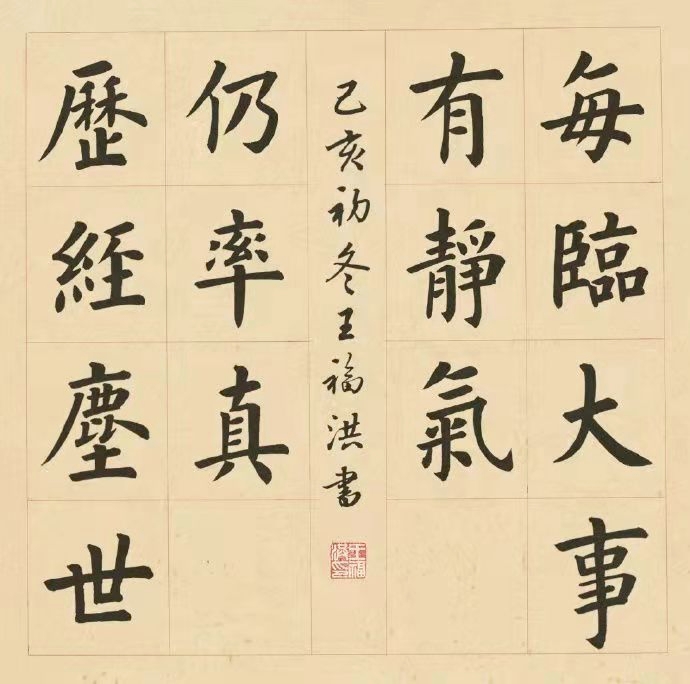 每臨大事
有靜氣
歷經塵世
仍率真
己亥初冬王福洪書
王福洪印